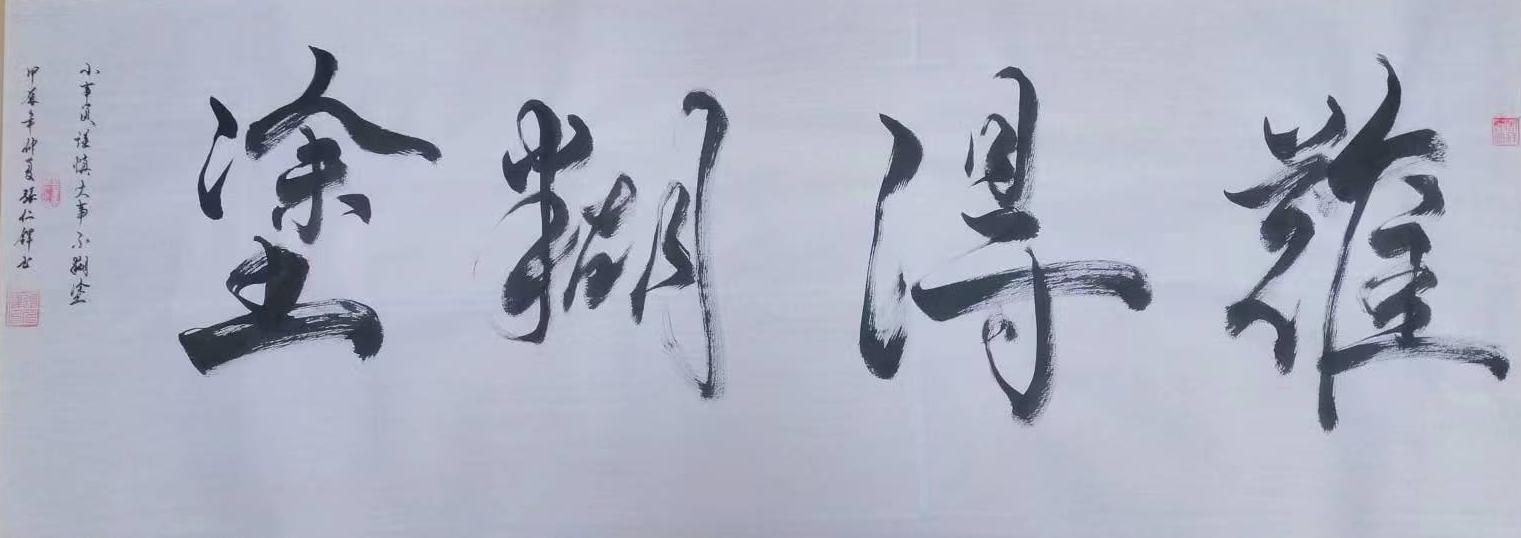 難得糊塗
小事須謹慎大事不糊塗
甲辰年仲夏張仁鐸書